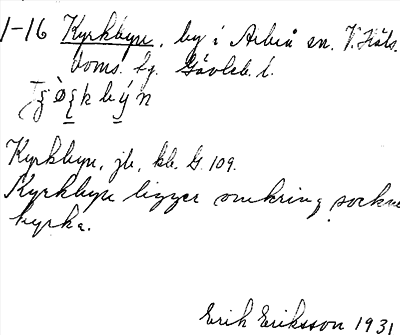 1-16 Kyrkbyn, by i Arbrå sn. V. Häls.
doms. fg. Gävleb. l.
kbýn
Kyrkbyn, jb, kb. G. 109.
Kyrkbyn ligger omkring sockne
kyrka.
Erik Eriksson 1931